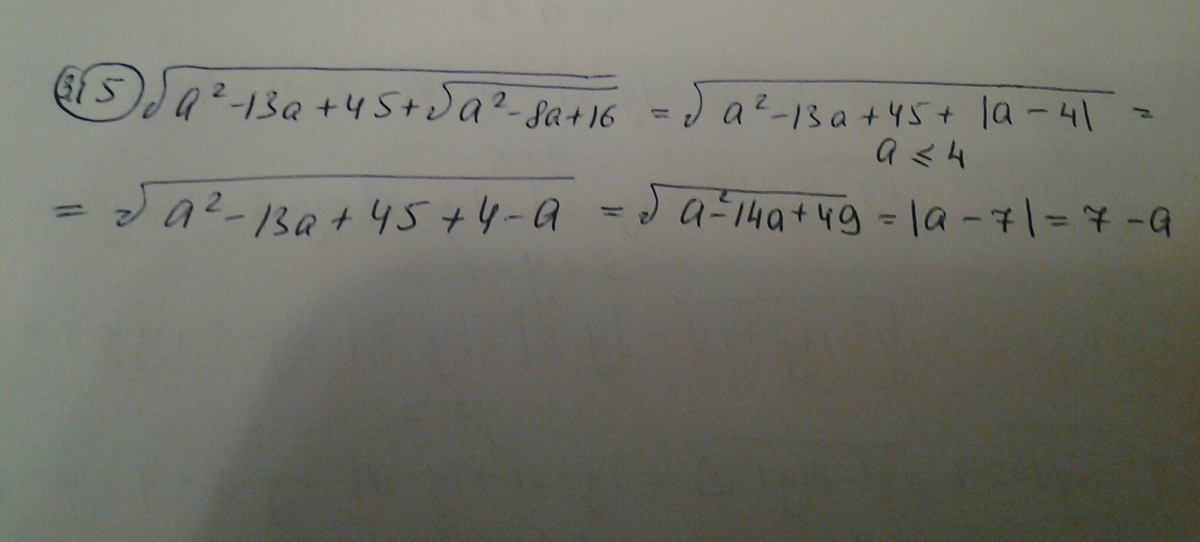 315) √(a²-13a+45+√(a²-8a+16)) = √(a²-13a+45+|a-4|) =
a ⩽ 4
= √(a²-13a+45+4-a) = √(a²-14a+49) = |a-7| = 7-a